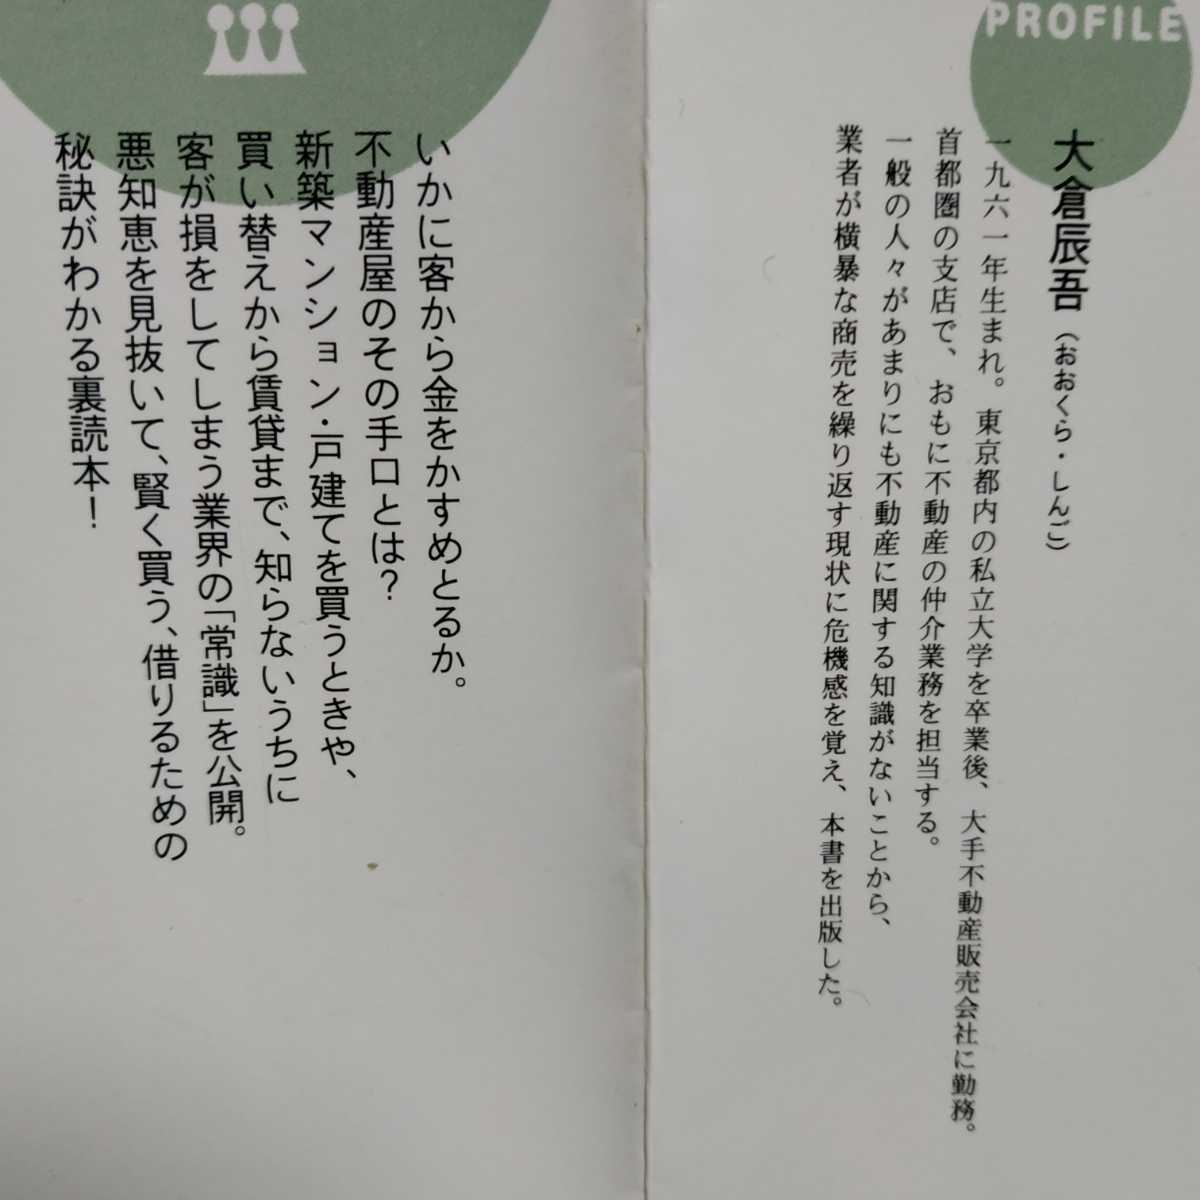 PROFILE
大倉辰吾（おおくら・しんご）
一九六一年生まれ。東京都内の私立大学を卒業後、大手不動産販売会社に勤務。
首都圏の支店で、おもに不動産の仲介業務を担当する。
一般の人々があまりにも不動産に関する知識がないことから、
業者が横暴な商売を繰り返す現状に危機感を覚え、本書を出版した。
いかに客から金をかすめとるか。
不動産屋のその手口とは？
新築マンション・戸建てを買うときや、
買い替えから賃貸まで、知らないうちに
客が損をしてしまう業界の「常識」を公開。
悪知恵を見抜いて、賢く買う、借りるための
秘訣がわかる裏読本！